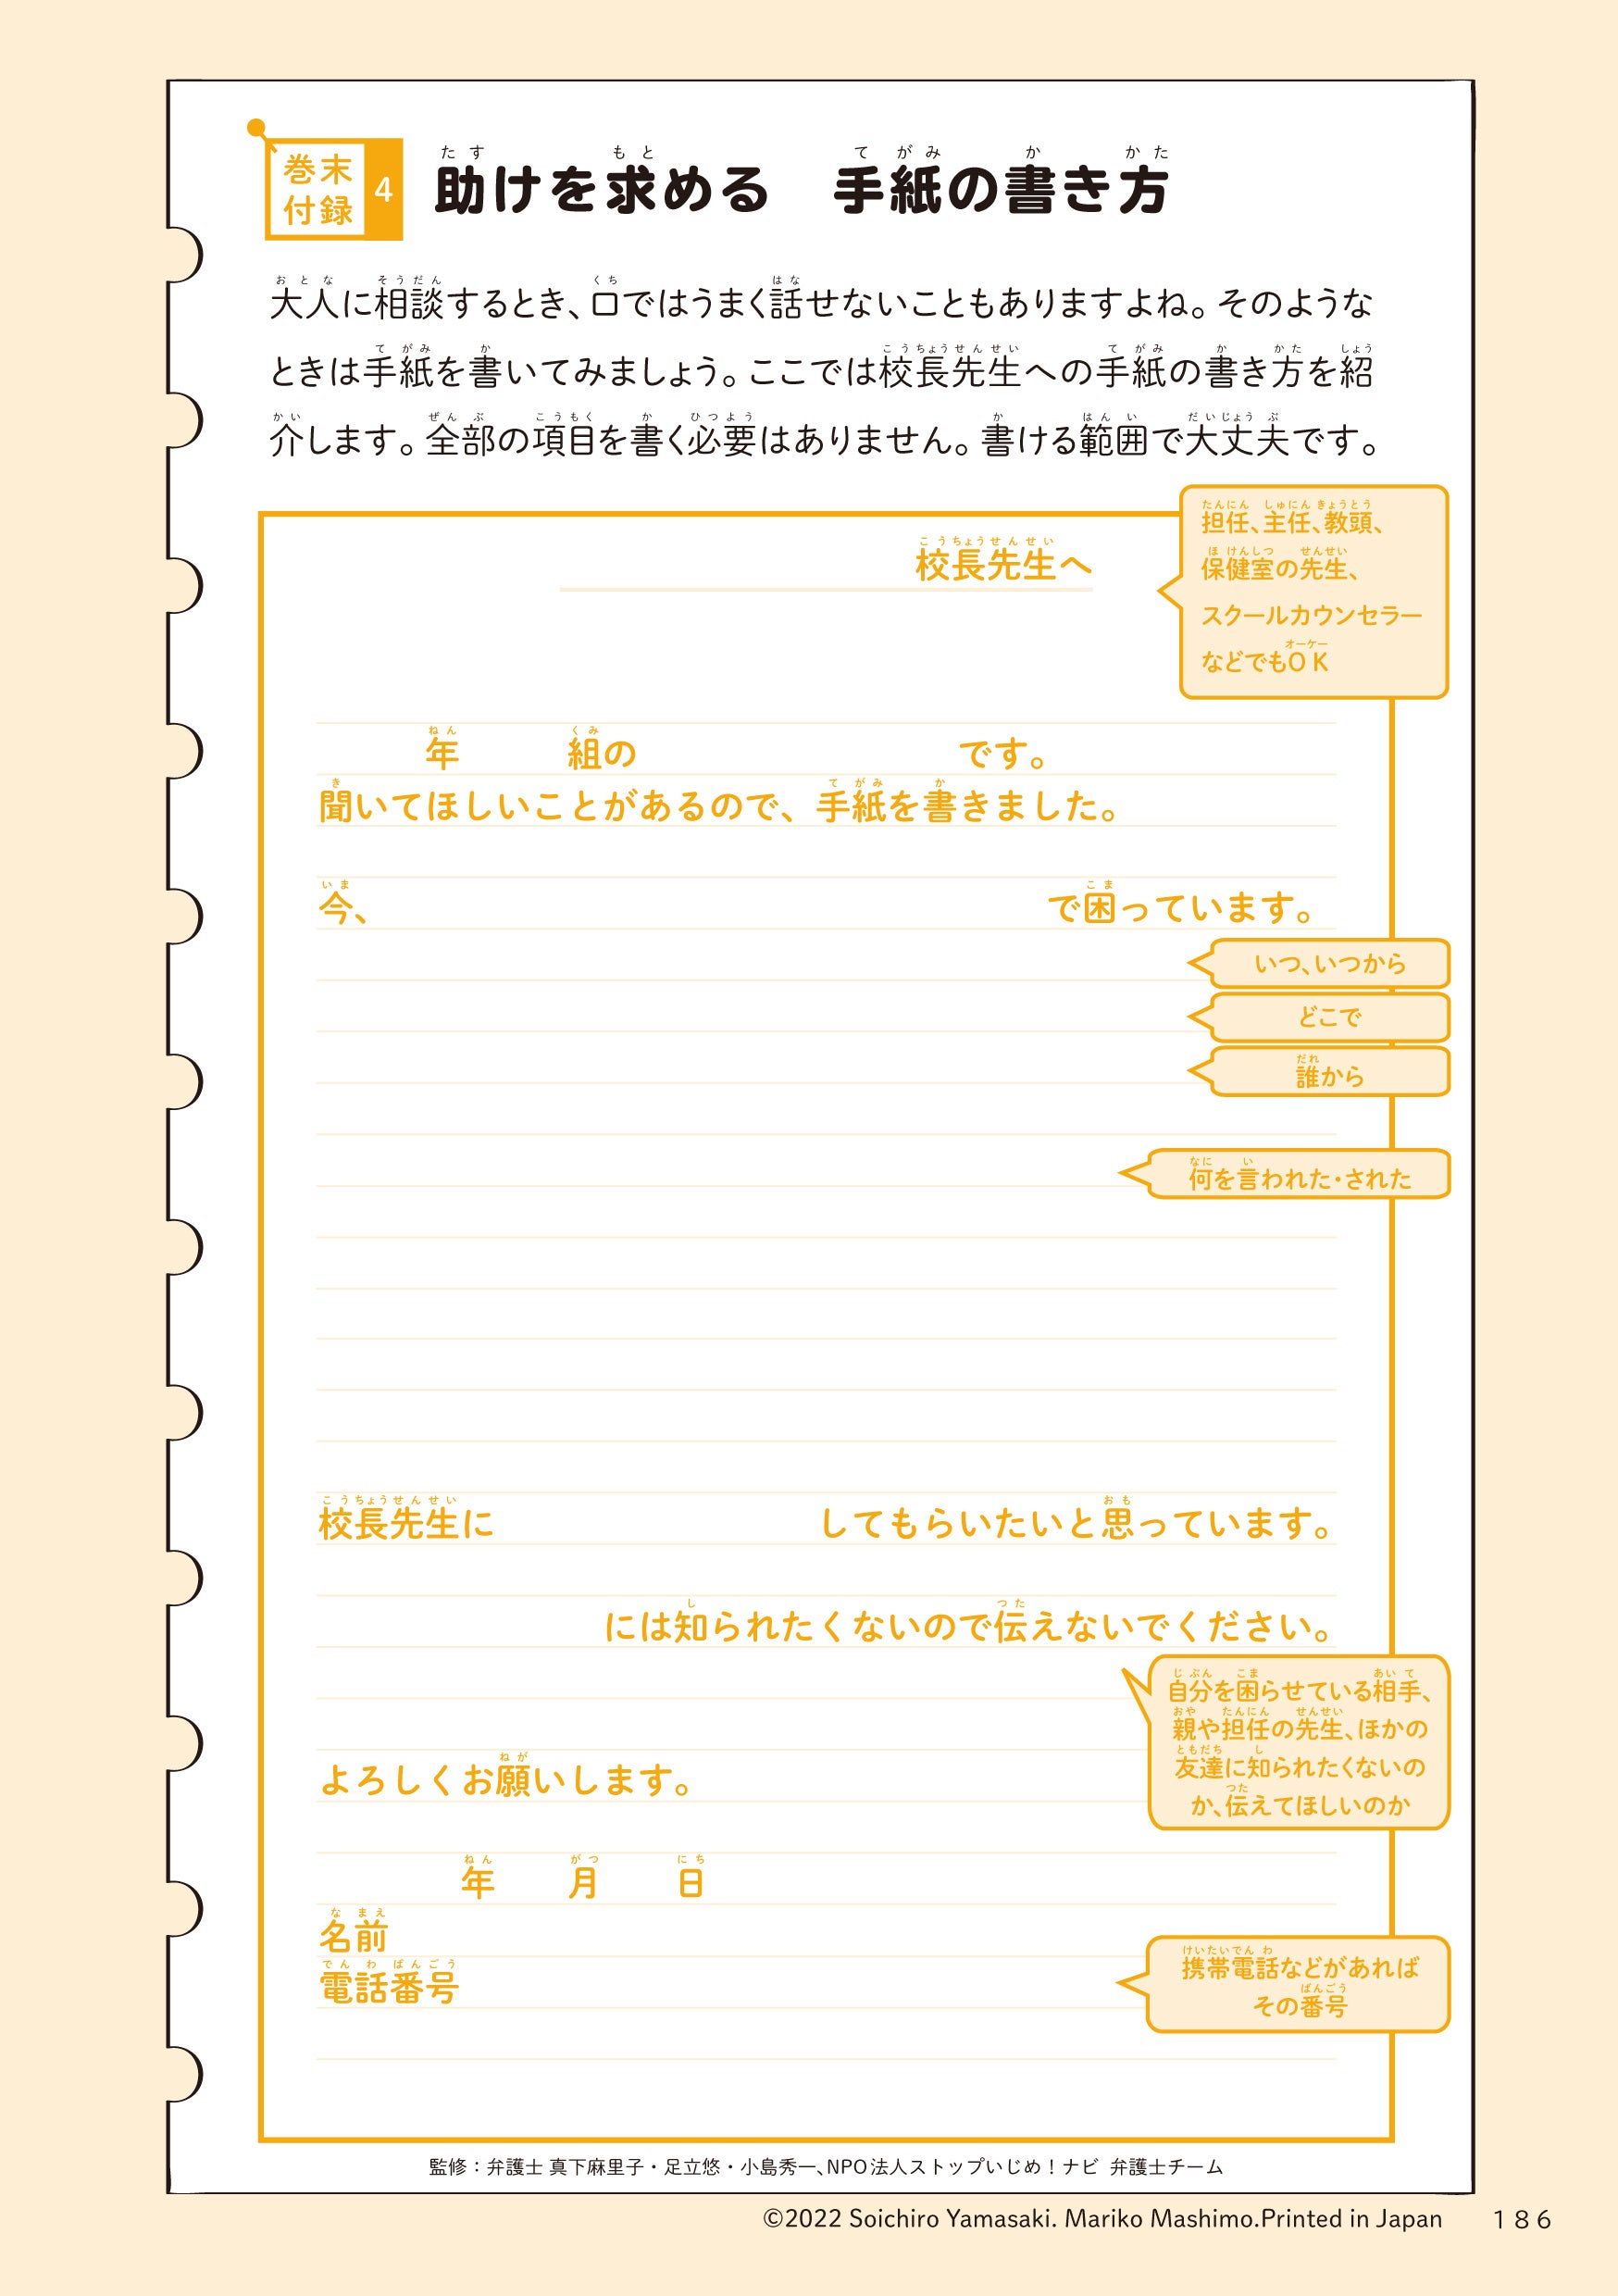 巻末付録 4 助けを求める 手紙の書き方
大人に相談するとき、口ではうまく話せないこともありますよね。そのような
ときは手紙を書いてみましょう。ここでは校長先生への手紙の書き方を紹
介します。全部の項目を書く必要はありません。書ける範囲で大丈夫です。
校長先生へ
担任、主任、教頭、
保健室の先生、
スクールカウンセラー
などでもOK
年 組の です。
聞いてほしいことがあるので、手紙を書きました。
今、 で困っています。
いつ、いつから
どこで
誰から
何を言われた・された
校長先生に してもらいたいと思っています。
には知られたくないので伝えないでください。
自分を困らせている相手、
親や担任の先生、ほかの
友達に知られたくないの
か、伝えてほしいのか
よろしくお願いします。
年 月 日
名前
電話番号
携帯電話などがあれば
その番号
監修：弁護士 真下麻里子・足立悠・小島秀一、NPO法人ストップいじめ！ナビ 弁護士チーム
©2022 Soichiro Yamasaki. Mariko Mashimo.Printed in Japan 186